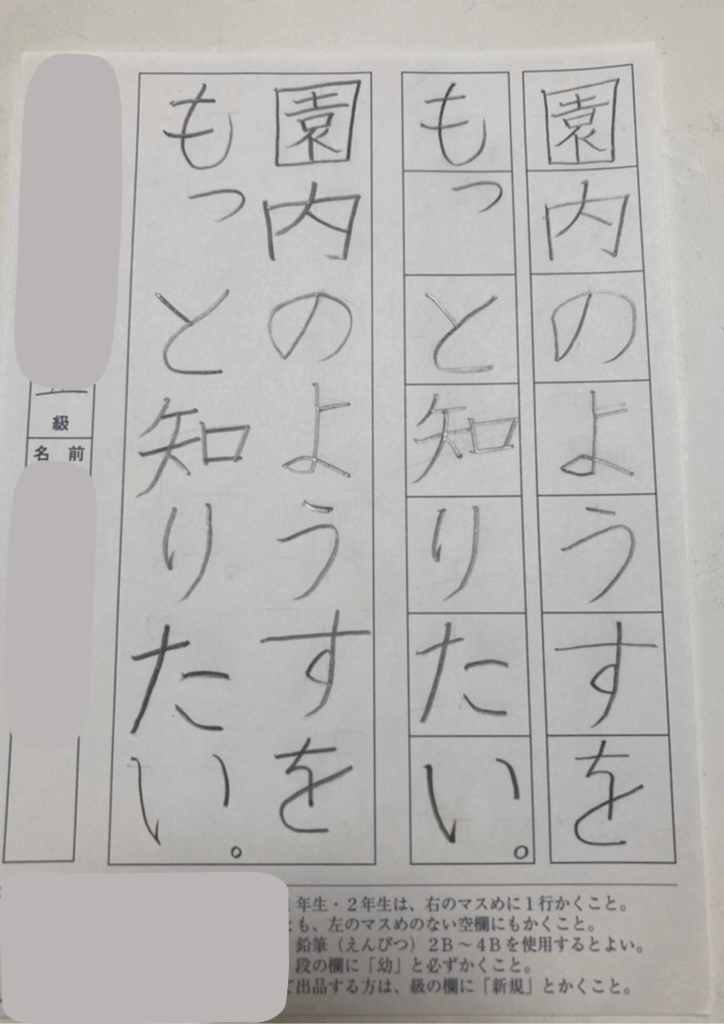 園内のようすを
もっと知りたい。
園内のようすを
もっと知りたい。
級
名前
年生・2年生は、右のマスめに1行かくこと。
も、左のマスめのない空欄にもかくこと。
鉛筆(えんぴつ)2B〜4Bを使用するとよい。
段の欄に「幼」と必ずかくこと。
出品する方は、級の欄に「新規」とかくこと。